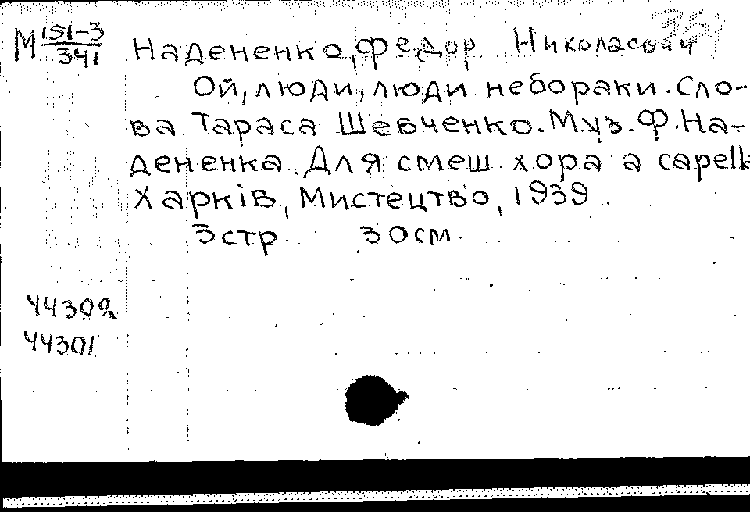 М 151-3/341 Надененко, Федор Николаевич
Ой, люди, люди небораки. Сло-
ва Тараса Шевченко. Муз. Ф. На-
дененка. Для смеш. хора a capell
Харкiв, Мистецтво, 1939.
3 стр. 30 см.
44302
44301